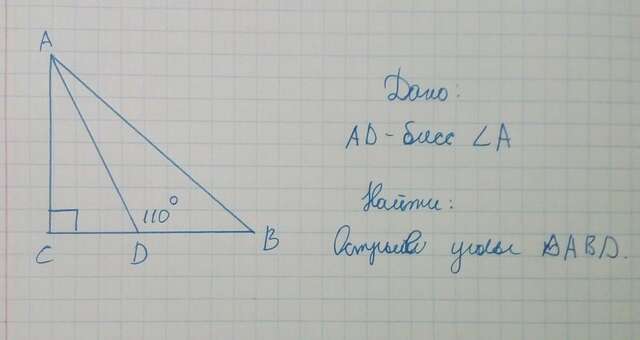 A
110°
C D B
Дано:
AD - бисс ∠A
Найти:
Острые углы ΔABD.